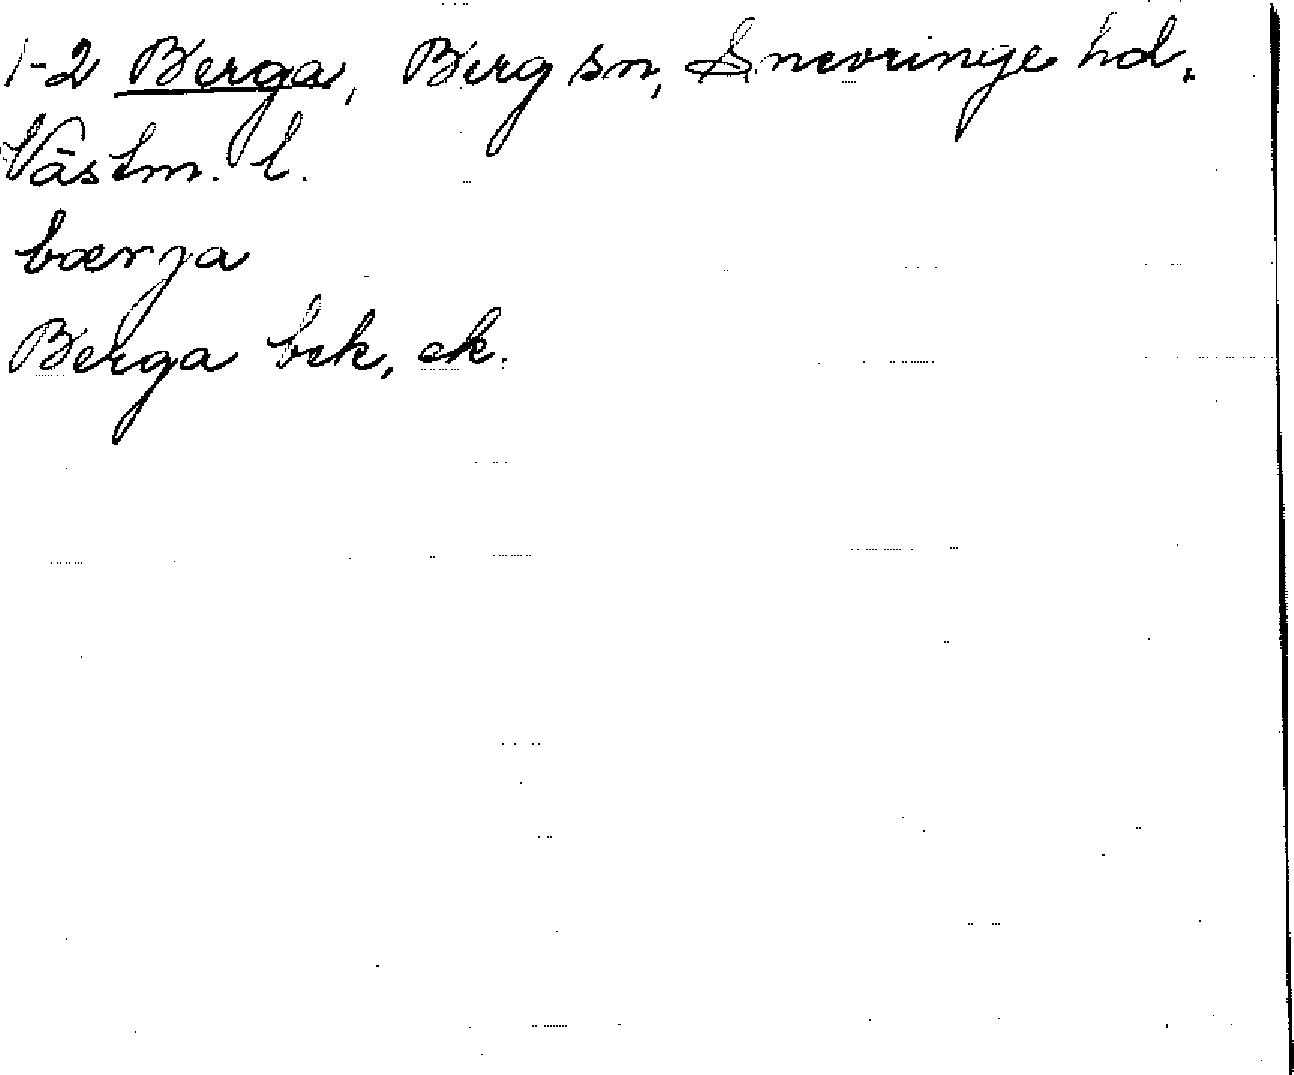 1-2 Berga, Berg sn, Snevringe hd.
Västm. l.
bærja
Berga bek, ek.